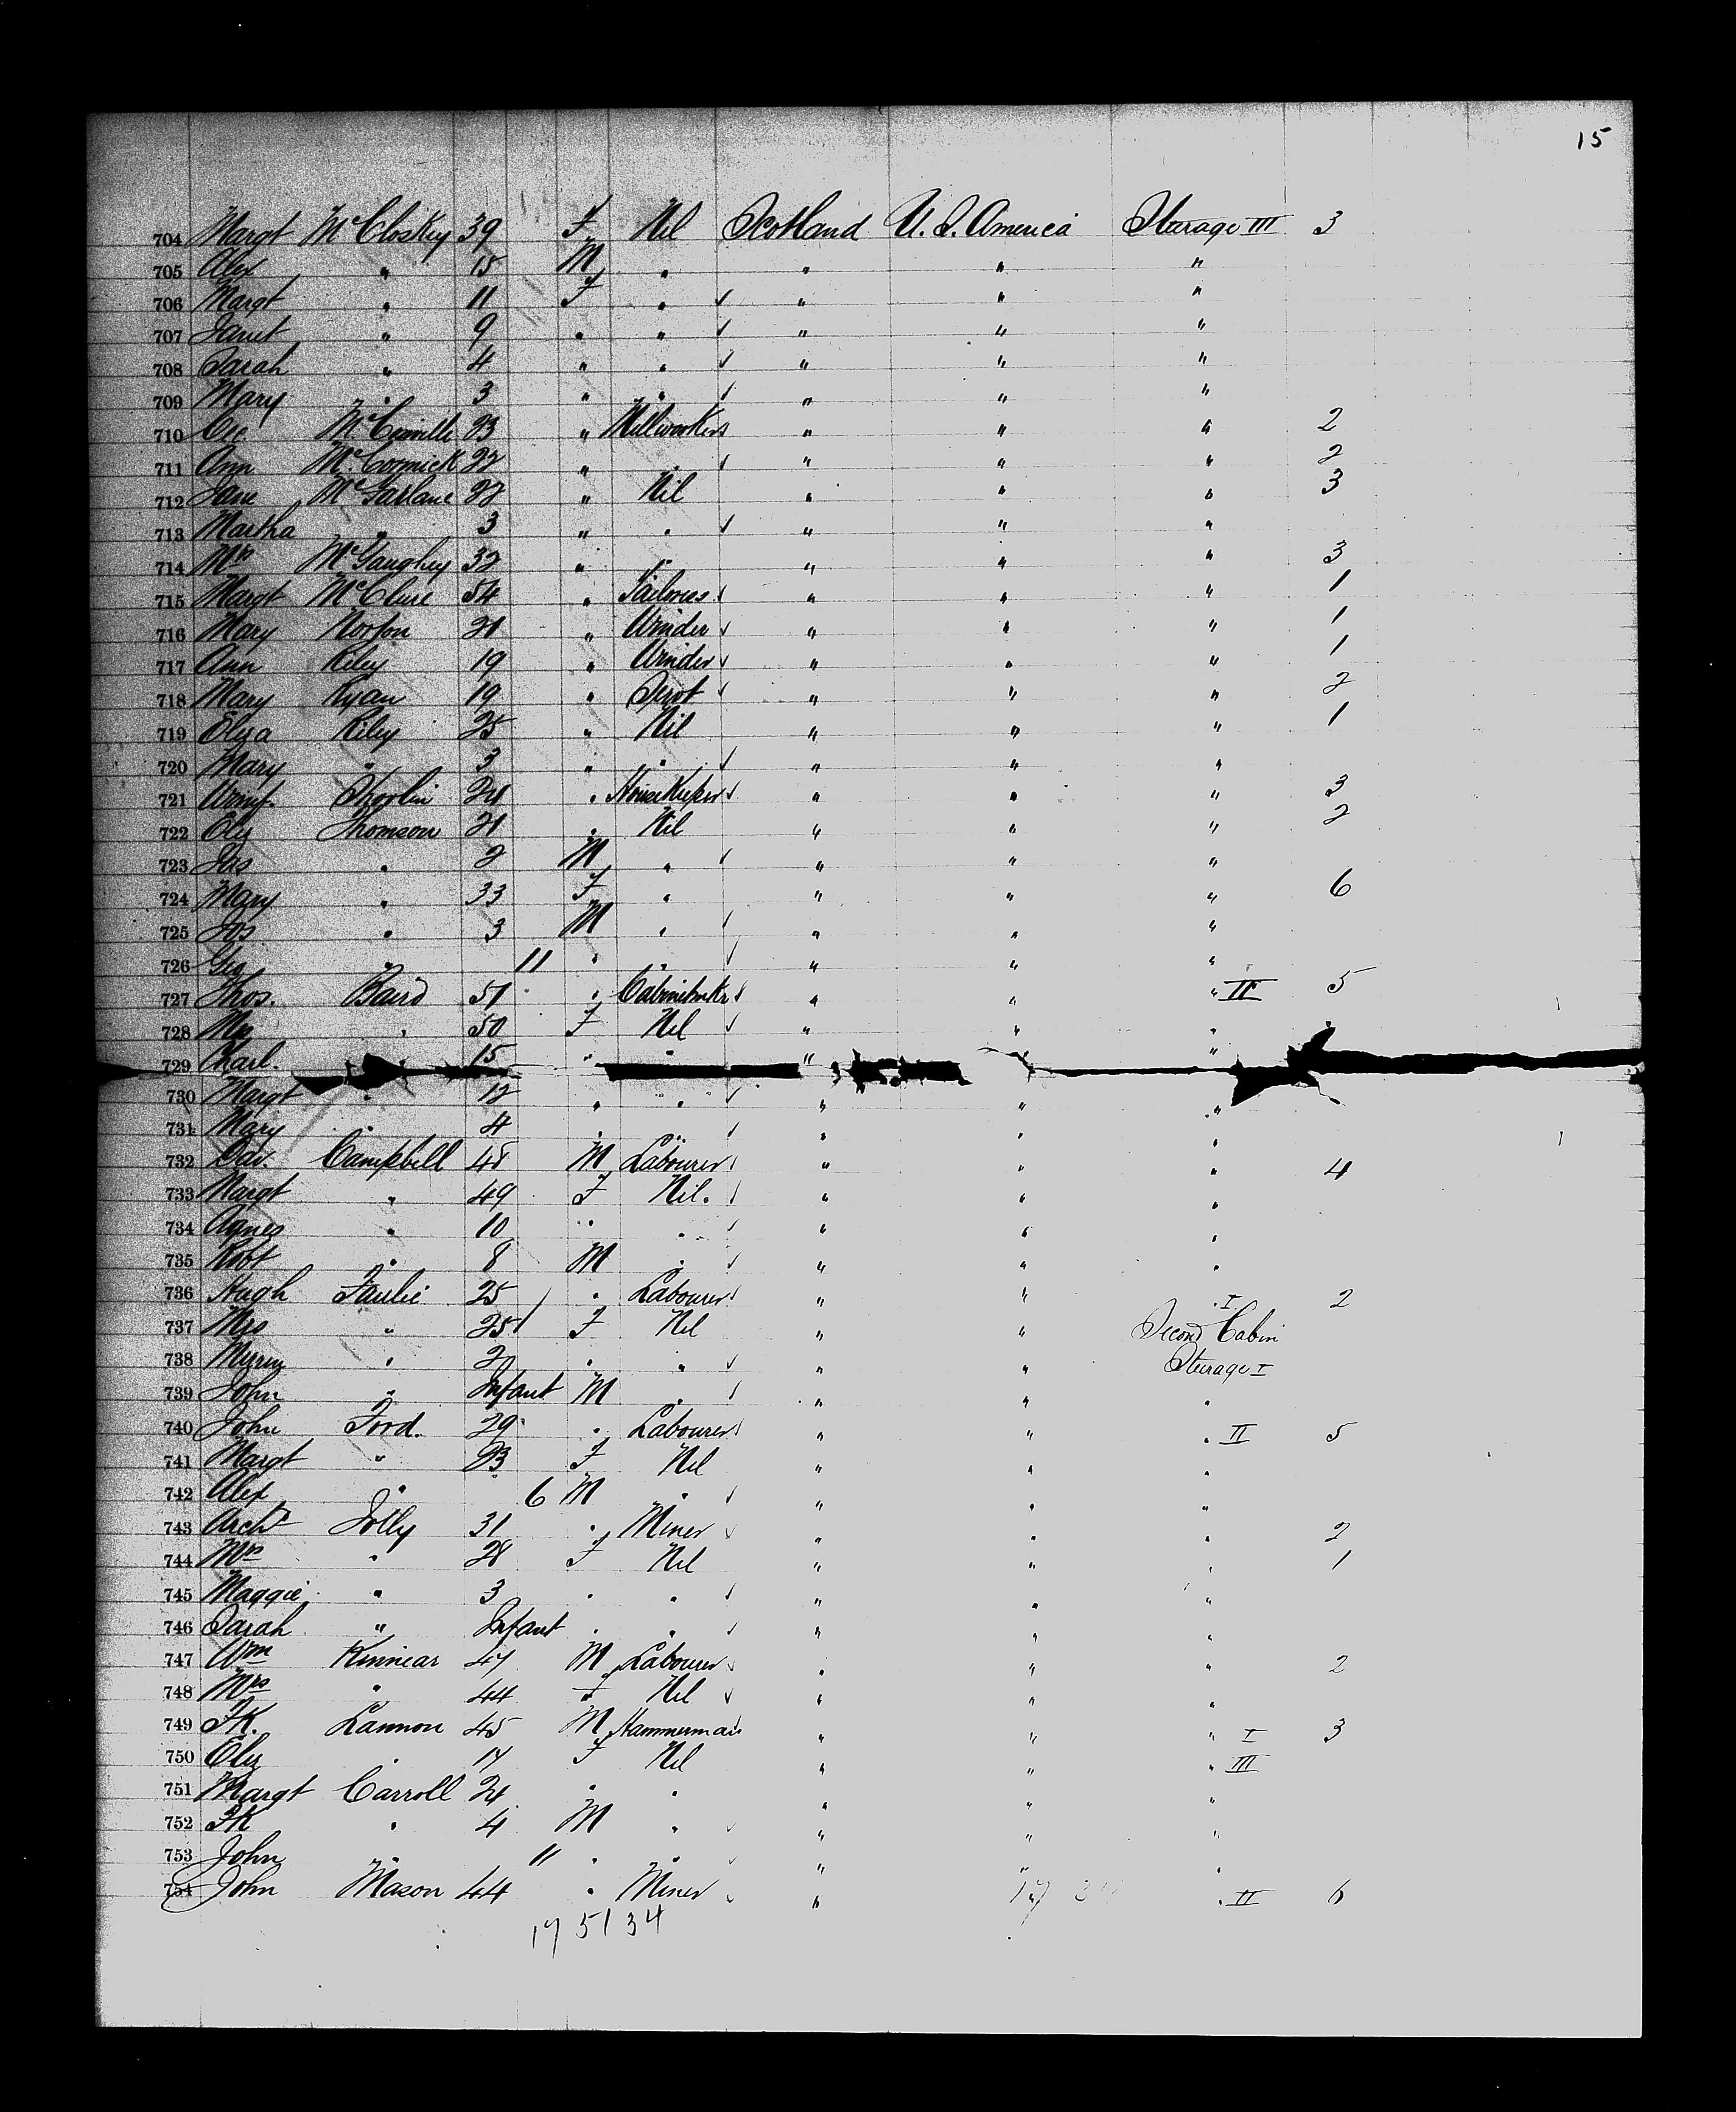 15
704 Margt McCloskey 39 F Nil Scotland U.S. America Sterage III 3
705 Alex " 15 M " " " "
706 Margt " 11 F " " " "
707 Janet " 9 " " " " "
708 Sarah " 4 " " " " "
709 Mary " 3 " " " " "
710 23 " Millworkers " " " 2
711 Ann McCormick 22 " " " " " 2
712 Jane McFarlane 22 " Nil " " " 3
713 Martha " 3 " " " " "
714 Mrs McGaughey 32 " " " " " 3
715 Margt McClure 54 " Tailoress " " " 1
716 Mary Norton 21 " Winder " " " 1
717 Ann Riley 19 " Winder " " " 1
718 Mary Ryan 19 " Servt " " " 2
719 Eliza Riley 25 " Nil " " " 1
720 Mary " 3 " " " " "
721 Winif. " HouseKeeper " " " 3
722 Eliz Thomson 21 " Nil " " " 2
723 Jas " 2 M " " " "
724 Mary " 33 F " " " " 6
725 Jos " 3 M " " " "
726 Geo " 11 " " " " "
727 Thos. Baird 51 " Cabinetmkr " " " II 5
728 Mrs " 50 F Nil " " "
729 15 " " " "
730 Margt " 12 " " " " "
731 Mary " 4 " " " " "
732 Dav. Campbell 48 M Labourer " " " 4
733 Margt " 49 F Nil. " " "
734 Agnes " 10 " " " " "
735 Robt " 8 M " " " "
736 Hugh 25 " Labourer " " " I 2
737 Mrs " 25 F Nil " " Second Cabin
738 " 2 " " " " Sterage I
739 John " Infant M " " " "
740 John Ford. 29 " Labourer " " " II 5
741 Margt " 23 F Nil " " "
742 Alex " 6 M " " " "
743 Archd Jolly 31 " Miner " " " 2
744 Mrs " 28 F Nil " " " 1
745 Maggie " 3 " " " " "
746 Sarah " Infant " " " " "
747 Wm Kinnear 47 M Labourer " " " 2
748 Mrs " 44 F Nil " " "
749 Fk. Lannon 45 M Hammerman " " " I 3
750 Eliz " 17 F Nil " " " III
751 Margt Carroll 24 " " " " "
752 Fk " 4 M " " " "
753 John " 11 " " " " "
754 John Mason 44 " Miner " " " II 6
17 51 34